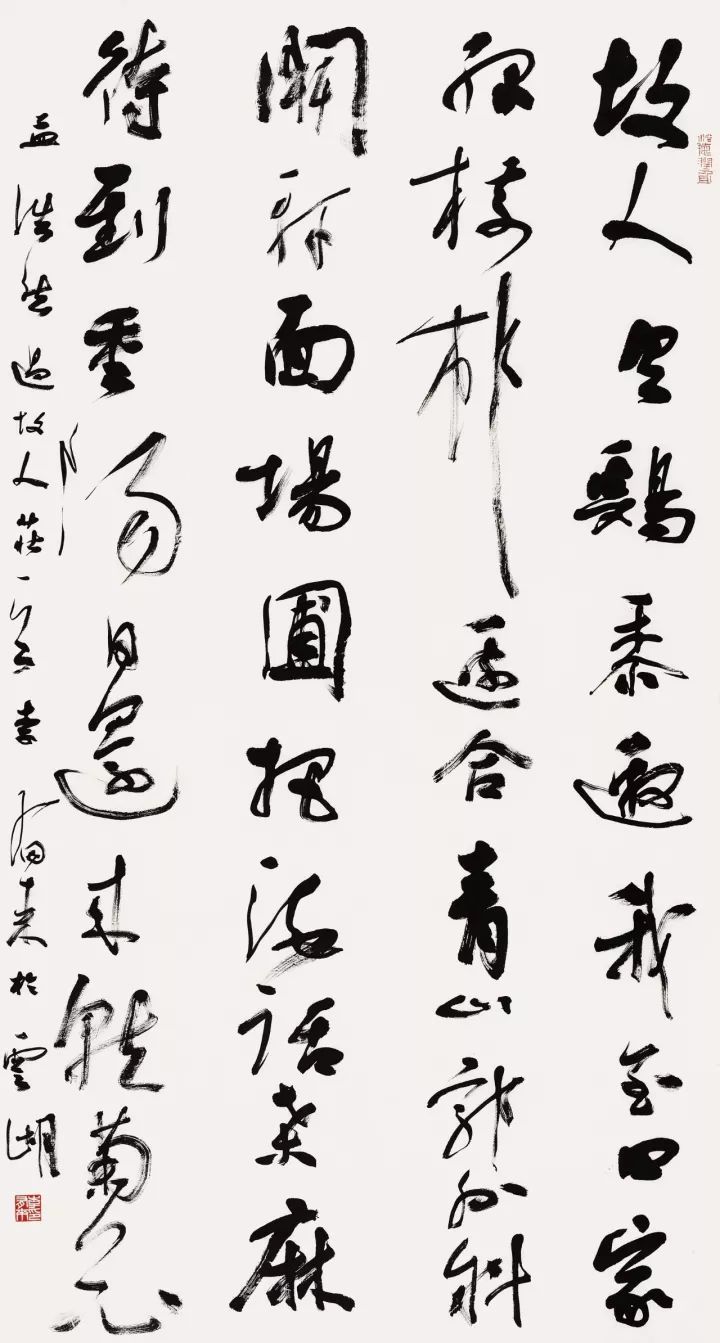 故人具鷄黍邀我至田家
緑樹村邊合青山郭外斜
開軒面場圃把酒話桑麻
待到重陽日還來就菊花
孟浩然過故人莊一首 李有来於雲湖